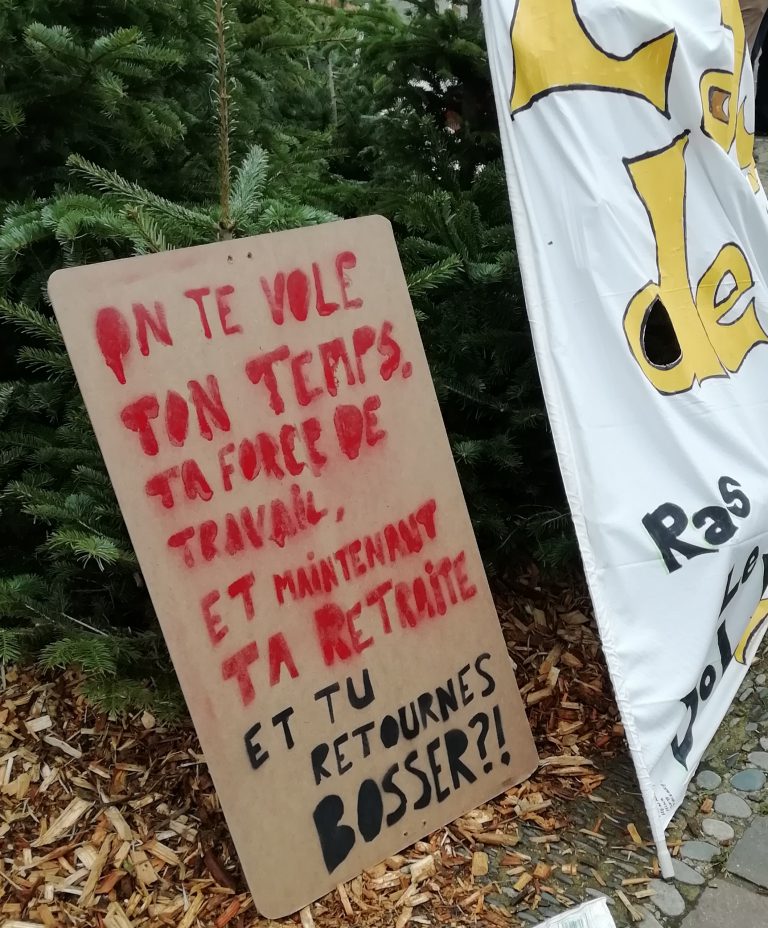 ON TE VOLE
TON TEMPS,
TA FORCE DE
TRAVAIL,
ET MAINTENANT
TA RETRAITE
ET TU
RETOURNES
BOSSER?!
de
Ras